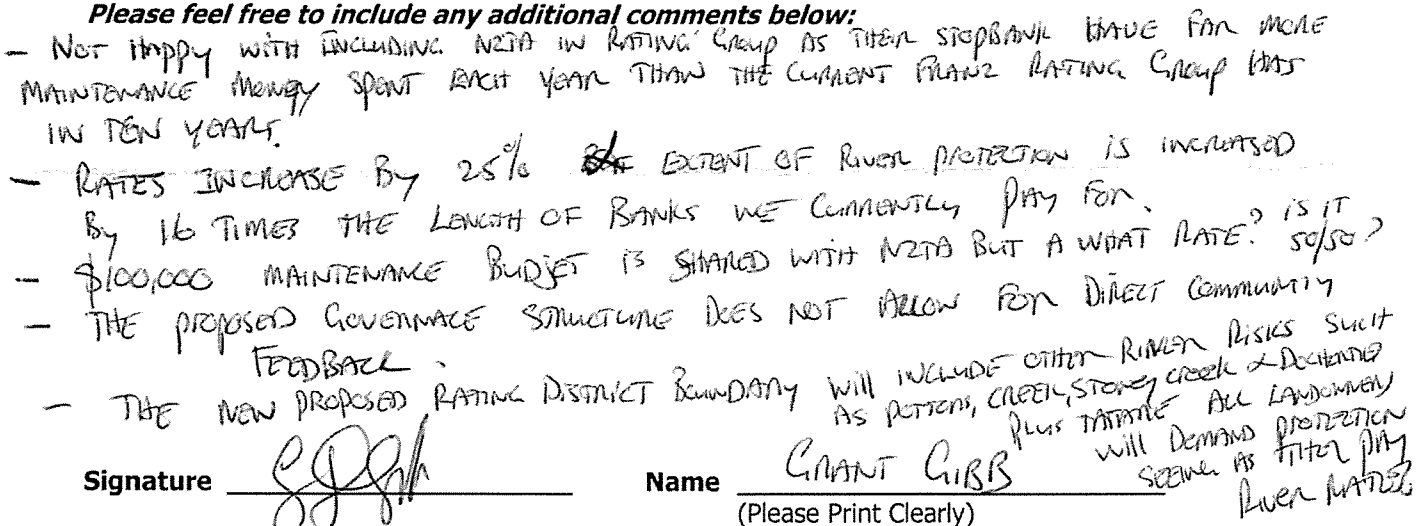 Please feel free to include any additional comments below:
- NOT HAPPY WITH INCLUDING NZTA IN RATING GROUP AS THEIR STOPBANK HAVE FAR MORE
MAINTENANCE MONEY SPENT EACH YEAR THAN THE CURRENT FRANZ RATING GROUP HAS
IN TEN YEARS.
- RATES INCREASE BY 25% EXTENT OF RIVER PROTECTION IS INCREASED
BY 16 TIMES THE LENGTH OF BANKS WE CURRENTLY PAY FOR.
- $100,000 MAINTENANCE BUDJET IS SHARED WITH NZTA BUT A WHAT RATE? IS IT
50/50?
- THE PROPOSED GOVERNACE STRUCTURE DOES NOT ALLOW FOR DIRECT COMMUNITY
FEEDBACK.
- THE NEW PROPOSED RATING DISTRICT BOUNDARY WILL INCLUDE OTHER RIVER RISKS SUCH
AS POTTERS, CREEK, STONEY CREEK & DOCHERTIES
PLUS TATARE ALL LANDOWNERS
WILL DEMAND PROTECTION
SEEING AS THEY PAY
RIVER RATES
Signature
Name GRANT GIBB
(Please Print Clearly)